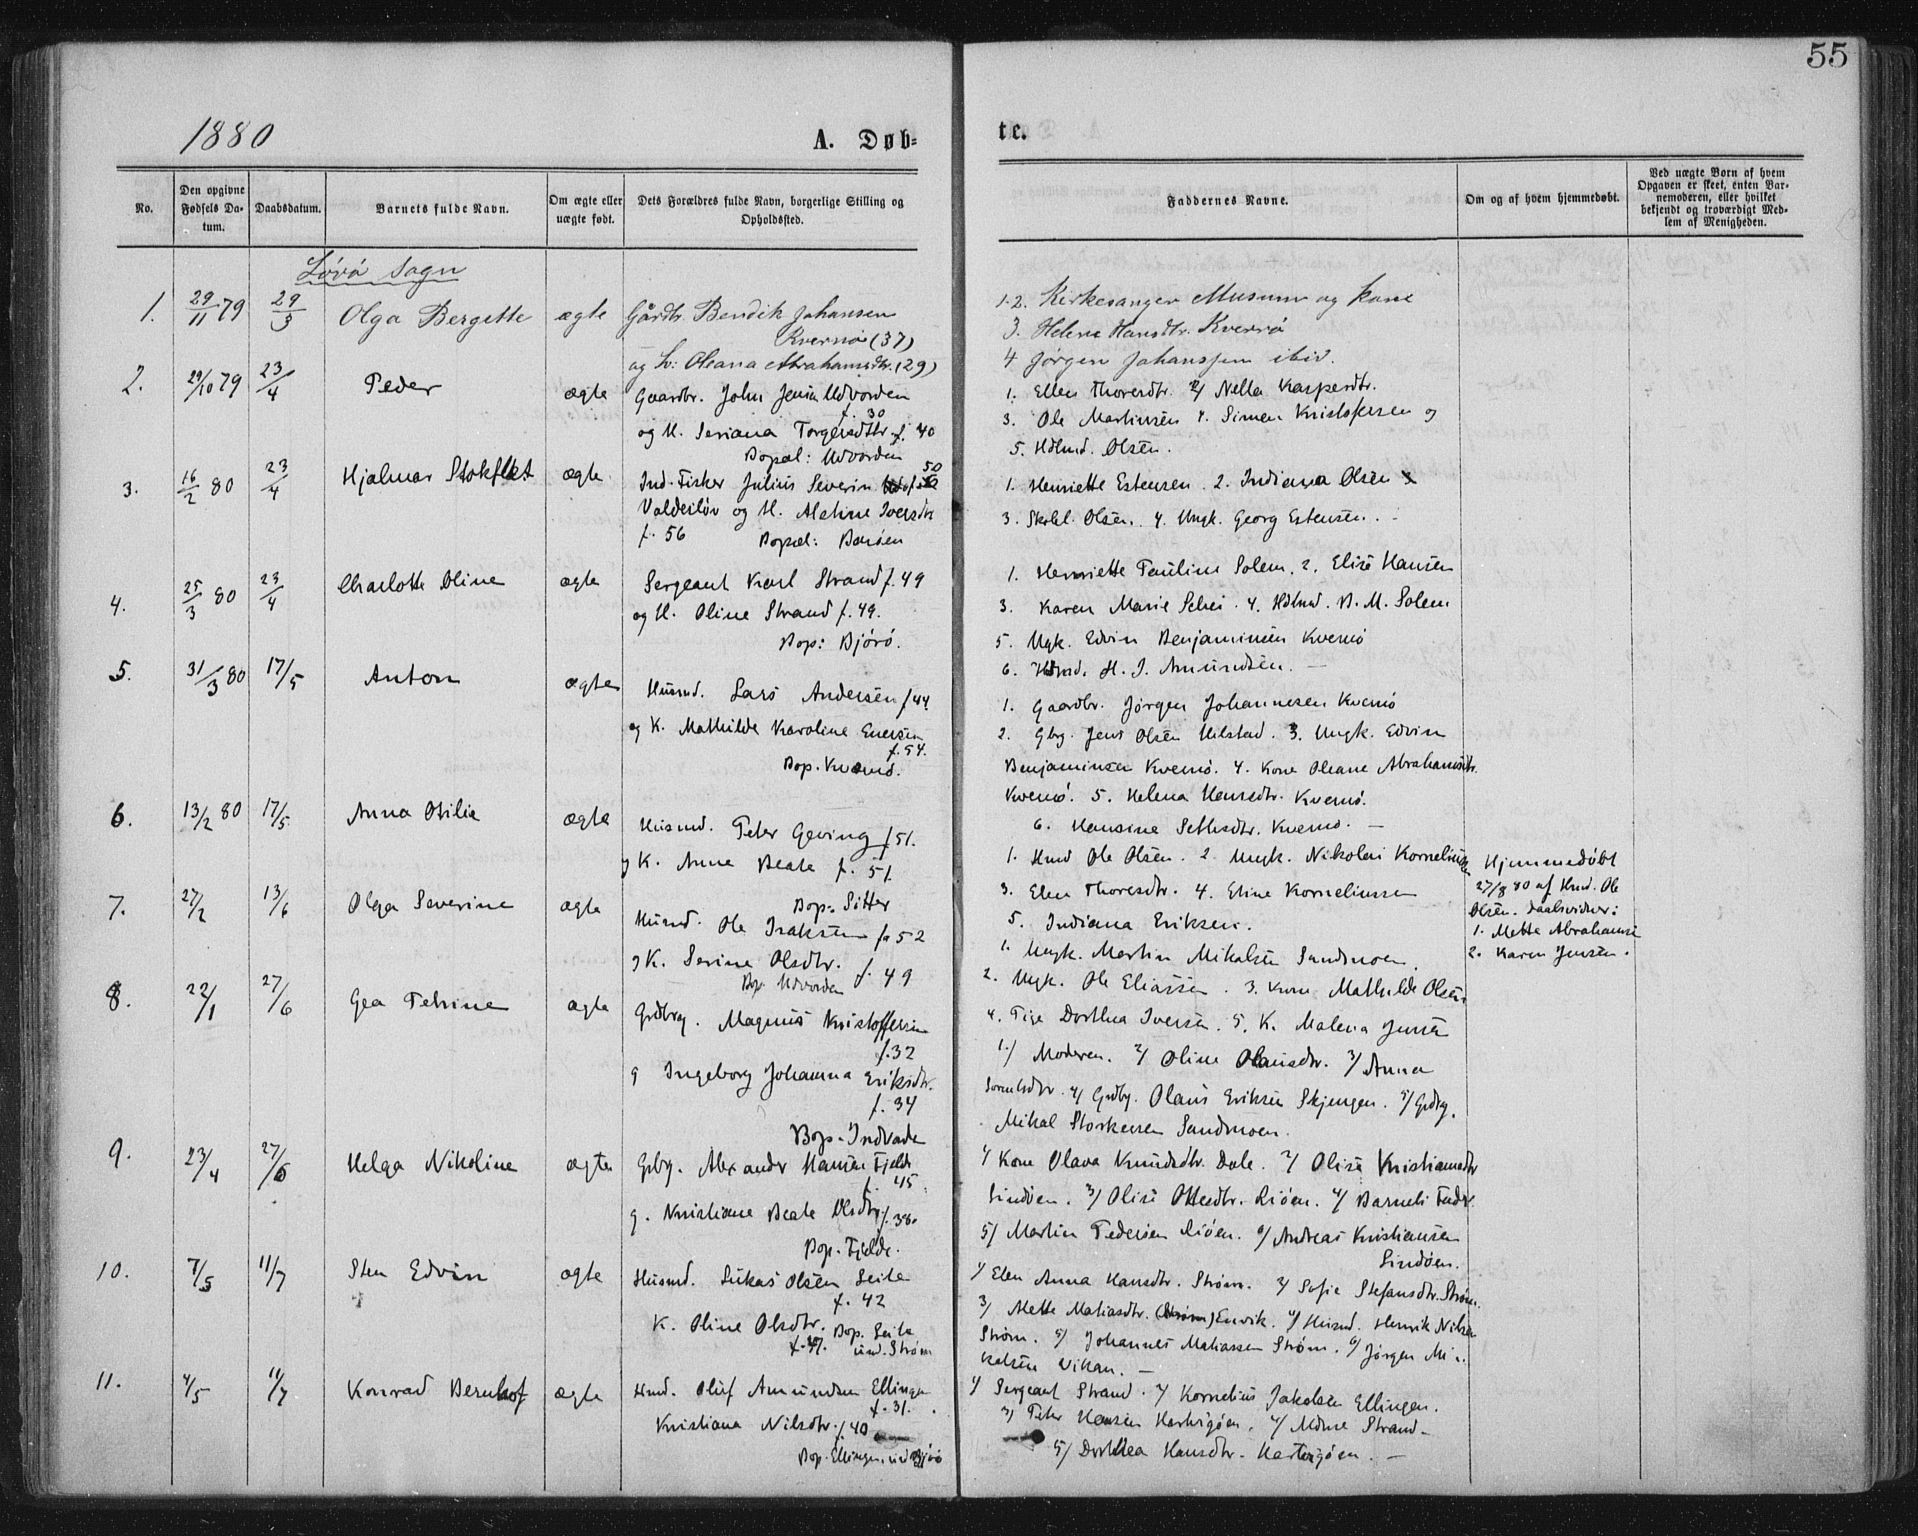 55
1880
A. Døb-
te.
No.
Den opgivne Fødsels Datum.
Daabsdatum.
Barnets fulde Navn.
Om ægte eller uægte født.
Dets Forældres fulde Navn, borgerlige Stilling og Opholdssted.
Faddernes Navne.
Om og af hvem hjemmedøbt.
Ved uægte Børn af hvem Opgaven er skeet, enten Barnemoderen, eller hvilket bekjendt og troværdigt Medlem af Menigheden.
Lövö Sogn
1. 29/11 79 29/3 Olga Bergitte ægte Gårdbr. Bendik Johansen
Kvernö (37)
og Oleana Abrahamsdtr. (29)
1-2. Kirkesanger Musum og kone
3. Helena Hansdtr. Kvernö
4 Jørgen Johanssen ibid.
2. 29/10 79 23/4 Peder ægte Gaardbr. John Jensen Udvorden
f. 30
og H. Seriana Torgersdttr. f. 40
Bopæl: Udvorden
1. Ellen Thoresdtr. 2/ Nella Kaspersdtr.
3. Ole Martinsen 4. Simen Kristofersen og
5. Olsen.
3. 16/2 80 23/4 Hjalmar Stokflet ægte Ind. Fisker Julius Severin 50
og H. Iversdtr
f. 56 Bopæl:
1. Henriette Estensen. 2. Indiana Olsen
3. Olsen. 4. Ungk. Georg Estensen.
4. 25/3 80 23/4 Charlotte Oline ægte Sergeant Karl Strand f. 49
og H. Oline Strand f. 49.
Bop: Bjørø.
1. Henriette Pauline Solem. 2. Elise Hansen
3. Karen Marie Schei. 4. B. M. Solem
5. Ungk. Edvin Benjaminsen Kvernö
6. H. J. Amundsen. —
5. 31/3 80 17/5 Anton ægte Husmd. Lars Andersen f 44.
og K. Mathilde Karoline
f. 54.
Bop. Kvernö.
1. Gaardbr. Jørgen Johannesen Kvernö
2. Gbg. Jens Olsen Hilstad. 3. Ungk. Edvin
Benjaminsen Kvernö. 4. Kone Oleane Abrahamsdtr.
Kvernö. 5. Helena Hansdtr. Kvernö.
6. Hansine Kvernö. —
6. 13/2 80 17/5 Anna Otilia ægte Husmd. Peter Geving f 51.
g K. Anne Beate f. 51.
Bop: Sitter
1. Hmd Ole Olsen. 2. Ungk. Nikolai Korneliusen
3. Elen Thoresdtr. 4. Eline Korneliussen
5. Indiana Eriksen.
Hjemmedøbt
27/3 80 af Hmd. Ole
Olsen. Daabsvidner:
1. Mette Abrahams
2. Karen Jensen.
7. 27/2 13/6 Olga Severine ægte Husmd. Ole Isaksen fø 52
g K. Serine Olsdtr. f. 49
Bop. Udvorden
1. Ungk. Martin Mikalsen Sandmoen.
2. Ungk. Ole Eliassen. 3. Kone Mathilde Olsen
4. Pige Dorthea Iversen. 5. K. Malena Jensen
8. 22/1 27/6 Gea Petrine ægte Grdbrg. Magnus Kristoffersen
f. 32
g Ingeborg Johanna Eriksdtr.
f. 34
Bop. Indvorden
1/ Moderen. 2/ Oline Olausdtr. 3/ Anna
4/ Grdbg. Olaus Eriksen Skjengen. 5/ Grdbg.
Mikal Storkersen Sandmoen.
9. 23/4 27/6 Helga Nikoline ægte Grbg. Alexander Hansen Fjelde
f. 45
g. Kristiane Beate Olsdtr f. 38.
Bop. Fjelde.
1/ Kone Olava Knudsdtr. Dale. 2/ Olise Kristiansdtr
Lindöen. 3/ Olise Ottesdtr. Riöen. 4/
5/ Martin Pedersen Riöen. 6/ Andreas Kristiansen
Lindöen.
10. 7/5 11/7 Sten Edvin ægte Husmd. Lukas Olsen
f. 42
K. Oline Olsdtr.
Bop.
und. Strøm
1/ Elen Anna Hansdtr. Strøm. 2/ Sofie Stefansdtr. Strøm.
3/ Mette Matiasdtr. (Strøm) Envik. 4/ Husmd. Henrik Nilsen
Strøm. 5/ Johannes Matiassen Strøm. 6/ Jørgen Mi-
kalsen Vikan. —
11. 4/5 11/7 Konrad Bernhof ægte Hmd. Oluf Amundsen Ellingen
f. 31.
Kristiana Nilsdtr. f. 40
Bop. Ellingen und Bjørö
1/ Sergeant Strand. 2/ Kornelius Jakobsen Ellingen.
3/ Peter Hansen Hartvigöen. 4/ Mdme Strand.
5/ Dorthea Hansdtr. Hartvigöen. —